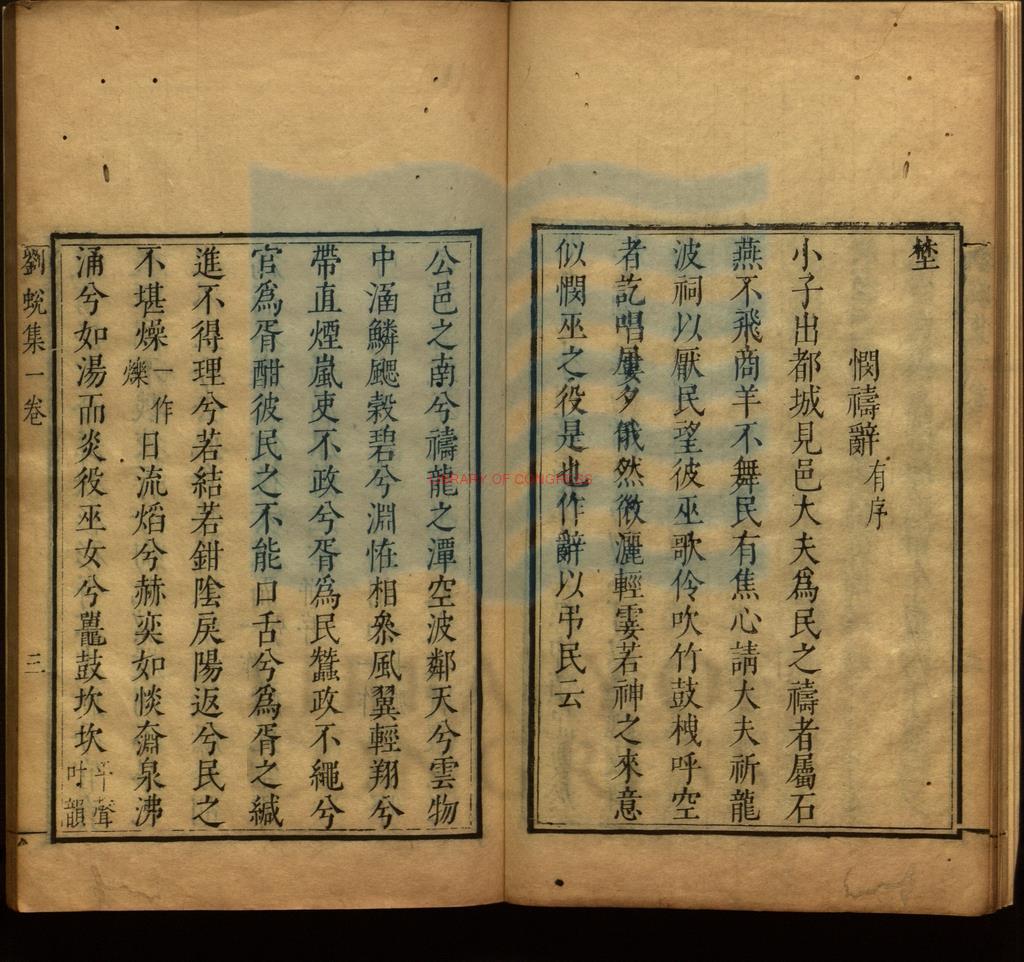 埜
憫禱辭有序
小子出都城見邑大夫爲民之禱者屬石
燕不飛商羊不舞民有焦心請大夫祈龍
波祠以厭民望彼巫歌伶吹竹鼓桟呼空
者訖唱屢夕俄然微灑輕霎若神之來意
似憫巫之役是也作辭以弔民云
公邑之南兮禱龍之潭空波鄰天兮雲物
中涵鱗颸縠碧兮淵恠相叅風翼輕翔兮
帶直煙嵐吏不政兮胥爲民蠶政不繩兮
官爲胥酣彼民之不能口舌兮爲胥之緘
進不得理兮若結若鉗陰戾陽返兮民之
不堪燥一作爍日流焰兮赫奕如惔奫泉沸
涌兮如湯而炎役巫女兮鼉鼓坎坎平聲叶韻
劉蛻集一卷
三
LIBRARY OF CONGRESS